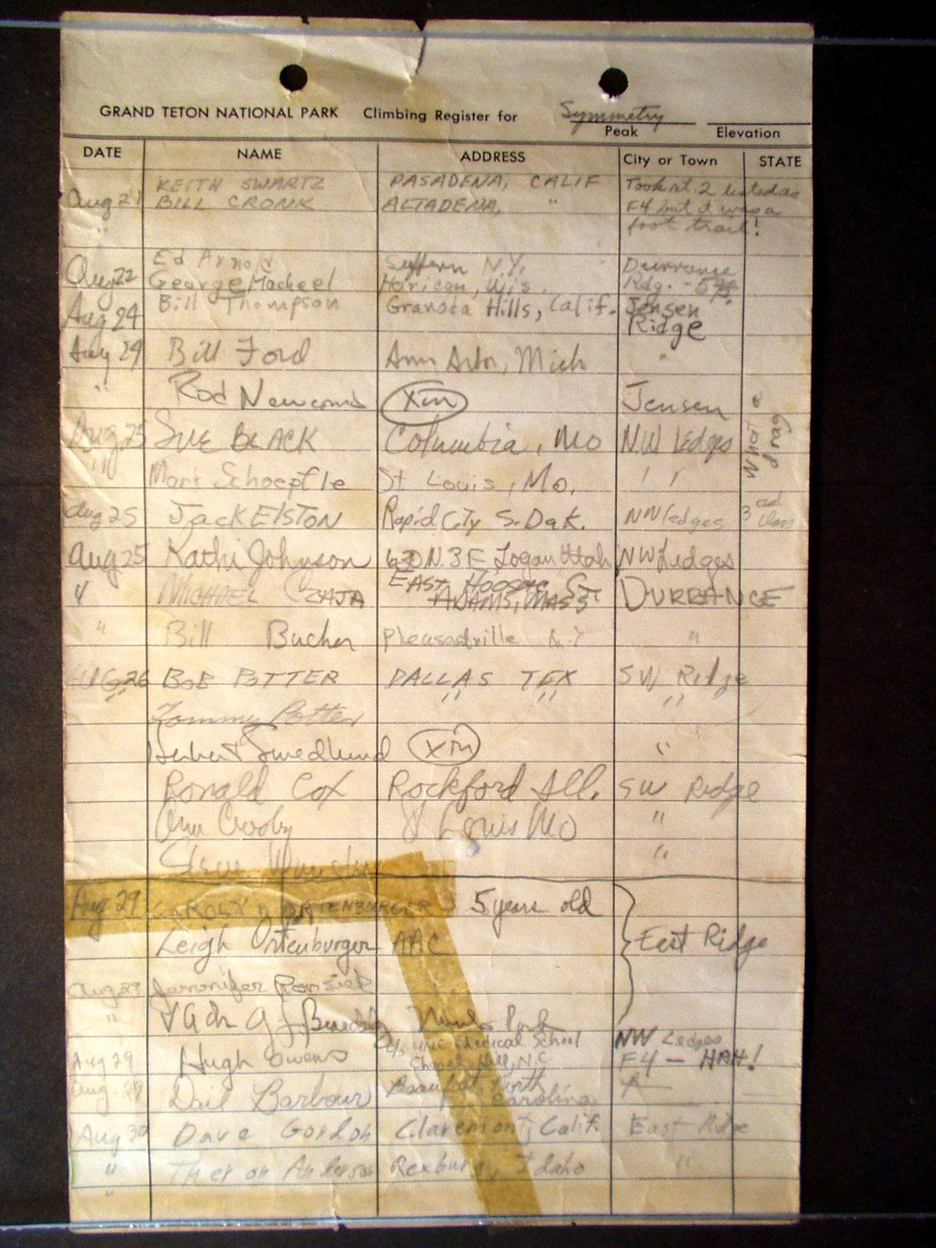 GRAND TETON NATIONAL PARK Climbing Register for Symmetry
Peak Elevation
DATE NAME ADDRESS City or Town STATE
KEITH SWARTZ PASADENA, CALIF Took rt. 2 listed as
Aug 21 BILL CRONK ALTADENA, " F4 but it was a
" foot trail!
Ed Arnold Suffern N.Y. Durrance
Aug 22 George Macheel Horicon, Wis. Rdg. -
Aug 24 Bill Thompson Granada Hills, Calif. Jensen
Ridge
Aug 24 Bill Ford Ann Arbor, Mich "
" Rod Newcomb XM Jensen
Aug 25 SUE BLACK Columbia, Mo NW Ledges What a drag
" Mart Schoepfle St Louis, Mo. ' '
Aug 25 JACK ELSTON Rapid City S. Dak. NW ledges 3rd class
Aug 25 Kathi Johnson 630 N. 3 E Logan Utah NW Ledges
" MICHAEL CZAJA EAST HOOSAC ST DURRANCE
ADAMS, MASS
" Bill Bucher Pleasantville N.Y "
AUG 26 BOB POTTER DALLAS TEX SW Ridge
" Tommy Potter " " "
Herbert Swedlund XM "
Ronald Cox Rockford Ill. SW Ridge
Ann Crosby St Louis Mo "
Steve "
Aug 29 CAROLYN ORTENBURGER 5 years old
Leigh Ortenburger AAC East Ridge
Aug 29 Jennifer
"
c/o UNC Medical School NW Ledges
Aug 29 Hugh Owens Chapel Hill, N.C. F4 — HAH!
Aug. 29 Dail Barbour Beaufort North Carolina
Aug 30 Dave Gordon Claremont, Calif. East Ridge
" Theron Anderson Rexburg, Idaho "
"